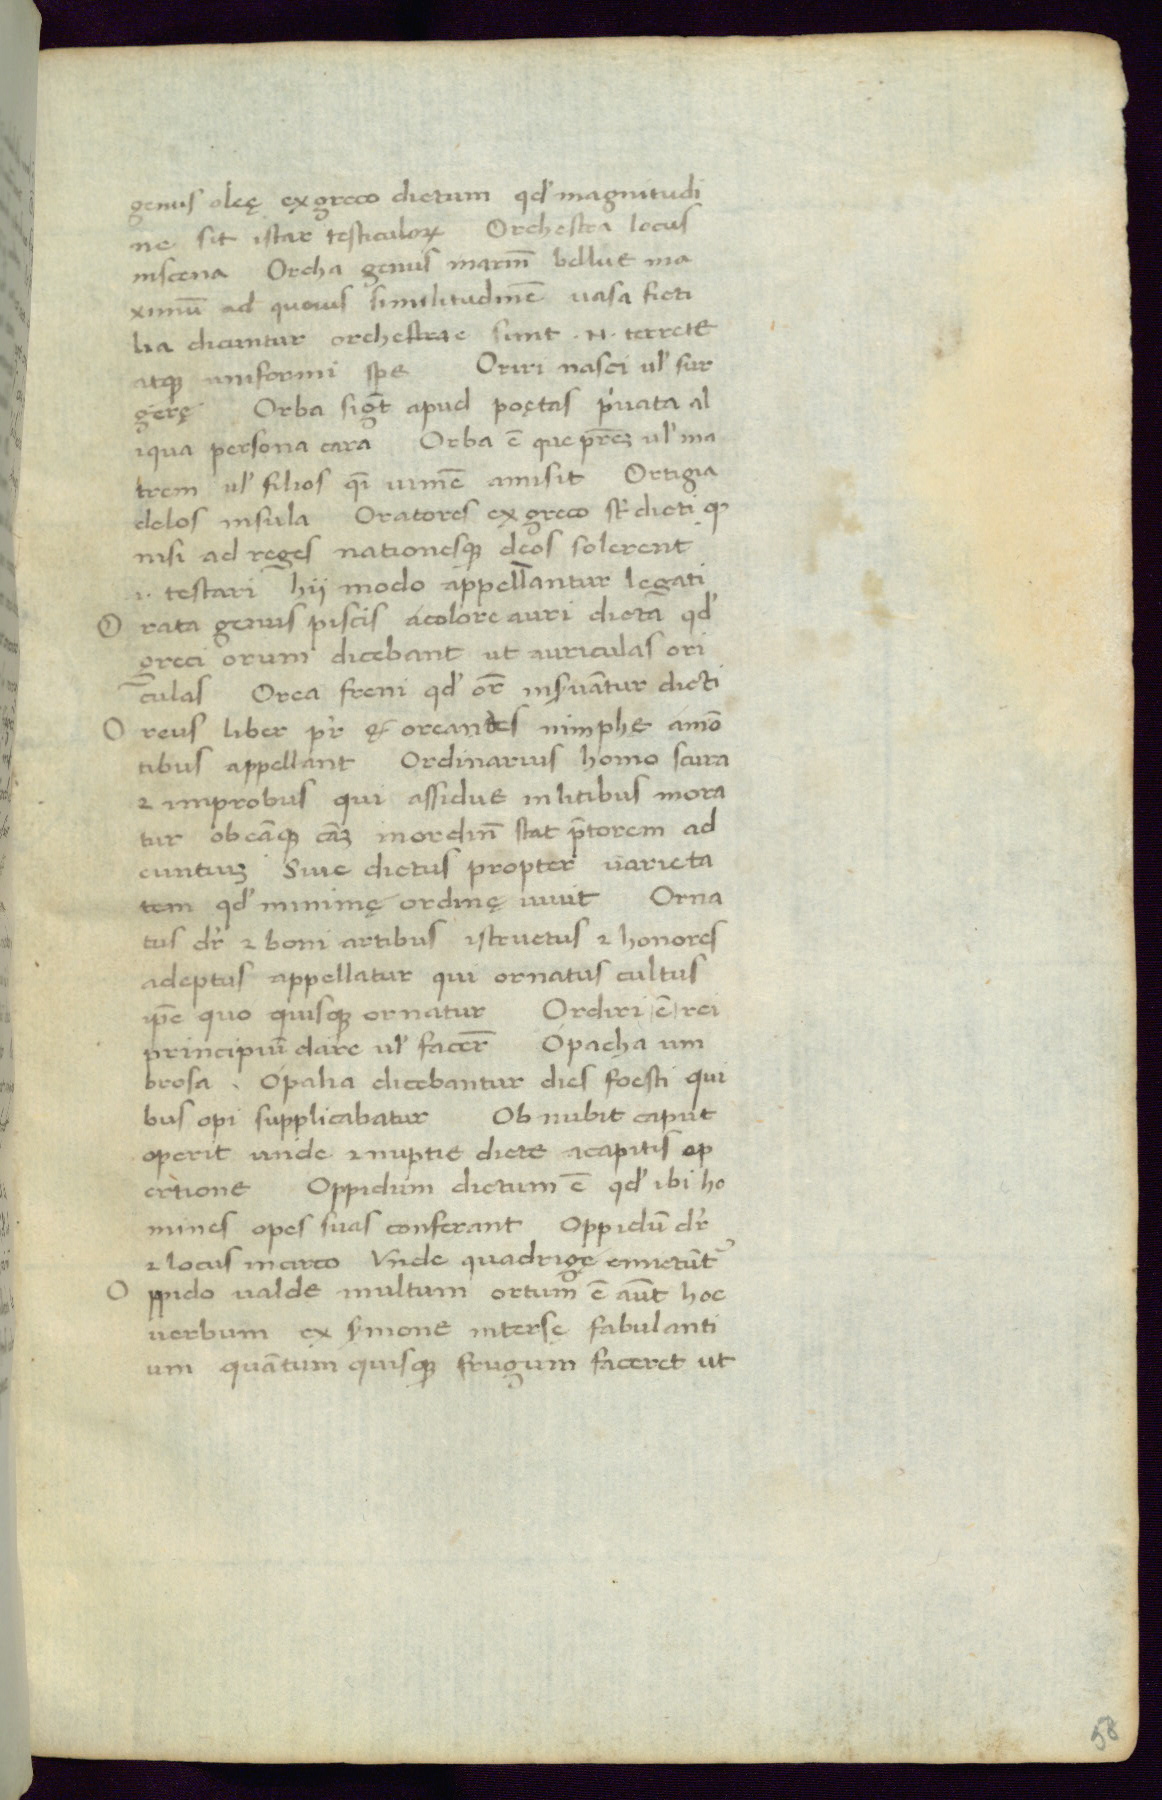 genus oleę ex greco dictum qd' magnitudi
ne sit istar testiculoꝝ Orchestra locus
inscena Orcha genus marin̄ bellue ma
ximū ad quoius similitudinē uasa ficti
lia dicuntur orchestrae sunt .N. terrete
atqꝫ uniformi spe Oriri nasci ul' sur
gerę Orba sigt̄ apud poętas p'uata al
iqua persona cara Orba ē que prēꝫ ul' ma
trem ul' filios qī uirnē amisit Ortigia
delos insula Oratores ex greco st̄ dicti qꝫ
nisi ad reges nationesqꝫ deos solerent
ı. testari hij modo appellantur legati
O rata genus piscis acolore auri dicta qd'
greci orum dicebant ut auriculas ori
culas Orea freni qd' or̄ insuāntur dicti
O reus liber pr̄ ę oreandes nimphe amō
tibus appellant Ordinarius homo scura
⁊ improbus qui assidue inlitibus mora
tur ob eāqꝫ cāꝫ inordin̄ stat p̄torem ad
euntiuꝫ Siue dictus propter uarieta
tem qd' minimę ordinę uiuit Orna
tus dr̄ ⁊ boni artibus istructus ⁊ honores
adeptus appellatur qui ornatus cultus
ip̄e quo quisqꝫ ornatur Ordiri ē rei
principiū dare ul' facer̄ Opacha um
brosa . Opalia dicebantur dies foesti qui
bus opi supplicabatur Ob nubit caput
operit unde ⁊ nuptie dicte acapitis op
ertione Oppidum dictum ē qd' ibi ho
mines opes suas conferant Oppidū dr̄
⁊ locus incirco Vnde quadrigę emictūt'
O ppido ualde multum ortum ē aūt hoc
uerbum ex smone interse fabulanti
um quāntum quisqꝫ frugum faceret ut
58